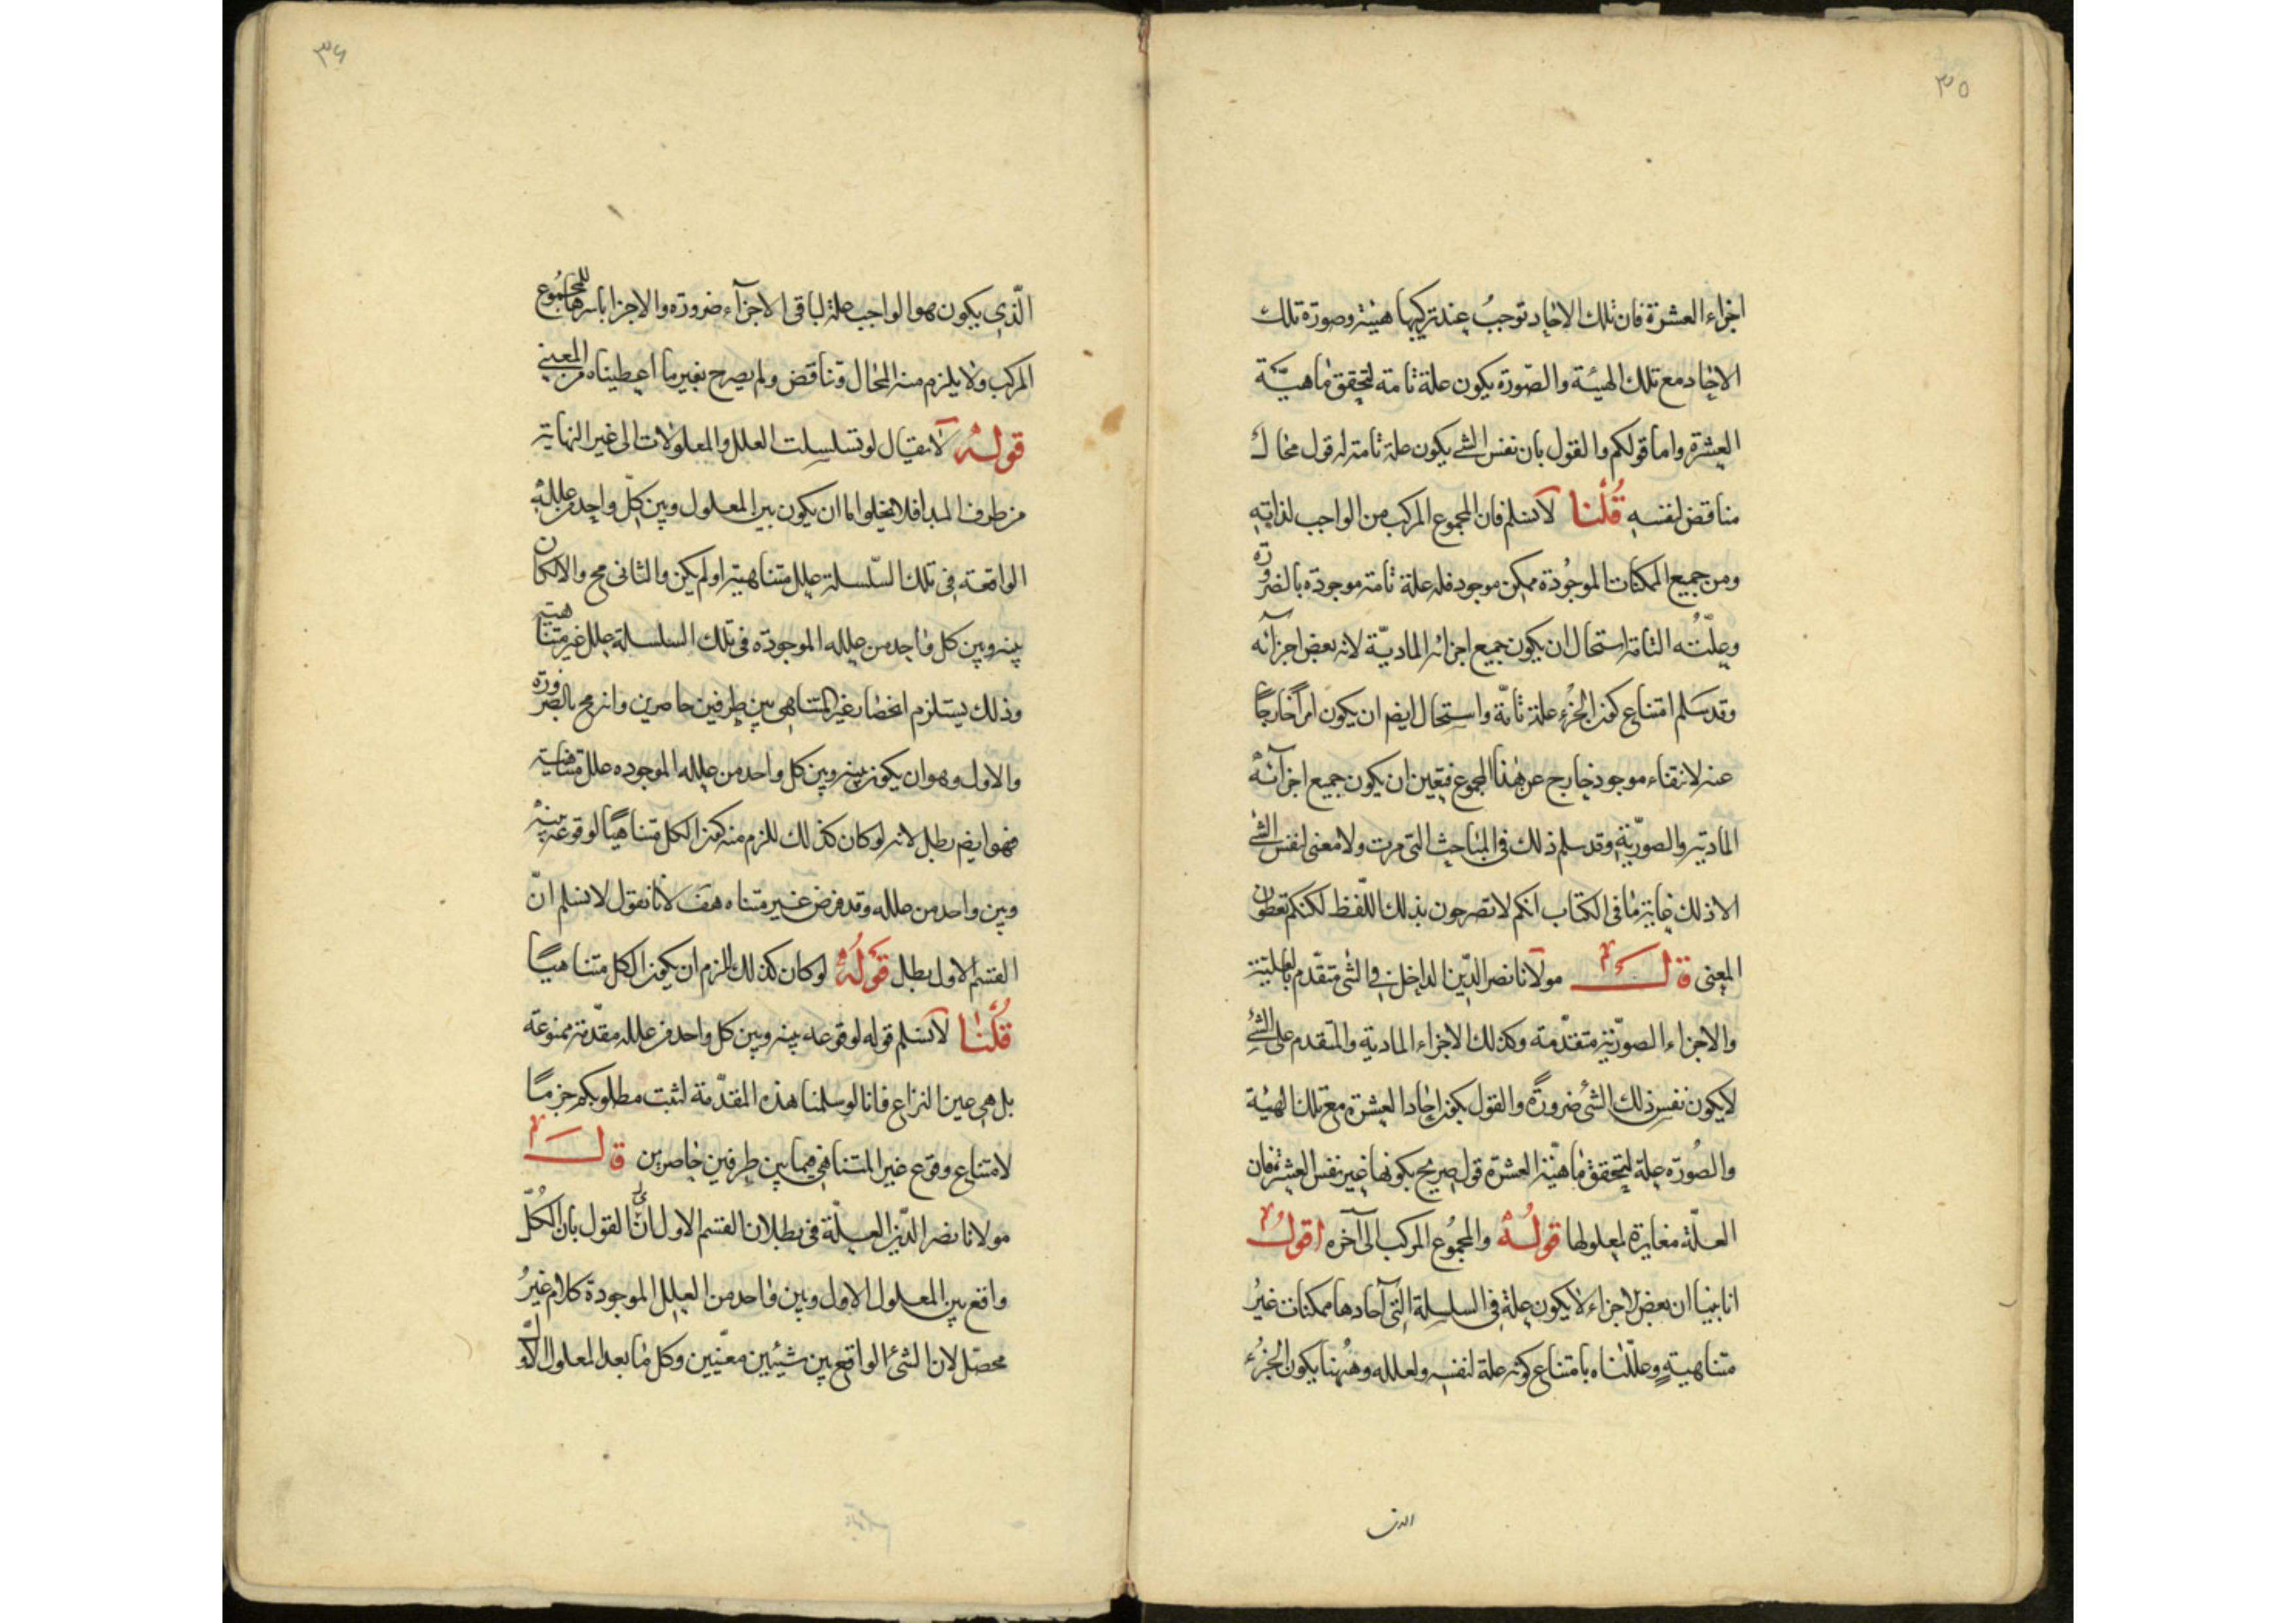 ٣٥
اجزاء العشرة فان تلك الاحاد توجب عند تركيبها هيئة وصورة تلك
الاحاد مع تلك الهيئة والصورة يكون علة تامة لتحقق ماهية
العشرة واما قولكم والقول بان نفس الشئ يكون علة تامة له قول محال
مناقض لنفسه قلنا لا نسلم فان المجموع المركب من الواجب لذاته
ومن جميع الممكنات الموجودة ممكن موجود فله علة تامة موجودة بالضرورة
وعلته التامة استحال ان يكون جميع اجزائه المادية لانه بعض اجزائه
وقد سلم امتناع كون الجزء علة تامة واستحال ايضم ان يكون امرا خارجا
عنه لانتفاء موجود خارج عن هذا المجموع فتعين ان يكون جميع اجزائه
المادية والصورية وقد سلم ذلك فى المباحث التى مرت ولا معنى لنفس الشئ
الا ذلك غاية ما فى الكتاب انكم لا تصرحون بذلك اللفظ لكنكم تعطون
المعنى قال مولانا نصر الدين الداخل فى الشئ متقدم بالعلية
والاجزاء الصورية متقدمة وكذلك الاجزاء المادية والمتقدم على الشئ
لا يكون نفس ذلك الشئ ضرورة والقول بكون احاد العشرة مع تلك الهيئة
والصورة علة لتحقق ماهية العشرة قول صريح بكونها غير نفس العشرة فان
العلة مغايرة لمعلولها قوله والمجموع المركب الى آخره اقول
انا بينا ان بعض الاجزاء لا يكون علة فى السلسلة التى آحادها ممكنات غير
متناهية وعللناه بامتناع كونه علة لنفسه ولعلله وههنا يكون الجزء
الذى
٣۶
الذى يكون هو الواجب علة لباقى الاجزاء ضرورة والاجزا باسرها للمجموع
المركب ولا يلزم منه المحال وتناقض ولم يصرح بغير ما اعطيناه من المعنى
قوله لا يقال لو تسلسلت العلل والمعلولات الى غير النهاية
من طرف المبدا فلا يخلوا اما ان يكون بين المعلول وبين كل واحد من علله
الواقعة فى تلك السلسلة علل متناهية او لم يكن والثانى مح والا لكان
بينه وبين كل واحد من علله الموجودة فى تلك السلسلة علل غير متناهية
وذلك يستلزم انحصار غير المتناهى بين طرفين حاصرين وانه مح بالضرورة
والاول وهو ان يكون بينه وبين كل واحد من علله الموجوده علل متناهية
فهو ايضم بطل لانه لو كان كذلك للزم منه كون الكل متناهيا لوقوعه بينه
وبين واحد من علله وقد فرض غير متناه هف لانا نقول لا نسلم ان
القسم الاول بطل قوله لو كان كذلك للزم ان يكون الكل متناهيا
قلنا لا نسلم قوله لوقوعه بينه وبين كل واحد من علله مقدمة ممنوعة
بل هى عين النزاع فانا لو سلمنا هذه المقدمة لثبت مطلوبكم جزما
لامتناع وقوع غير المتناهى فيما بين طرفين حاصرين قال
مولانا نصر الدين العلة فى بطلان القسم الاول ان القول بان الكل
واقع بين المعلول الاول وبين واحد من العلل الموجودة كلام غير
محصل لان الشئ الواقع بين شيئين معينين وكل ما بعد المعلول الاو